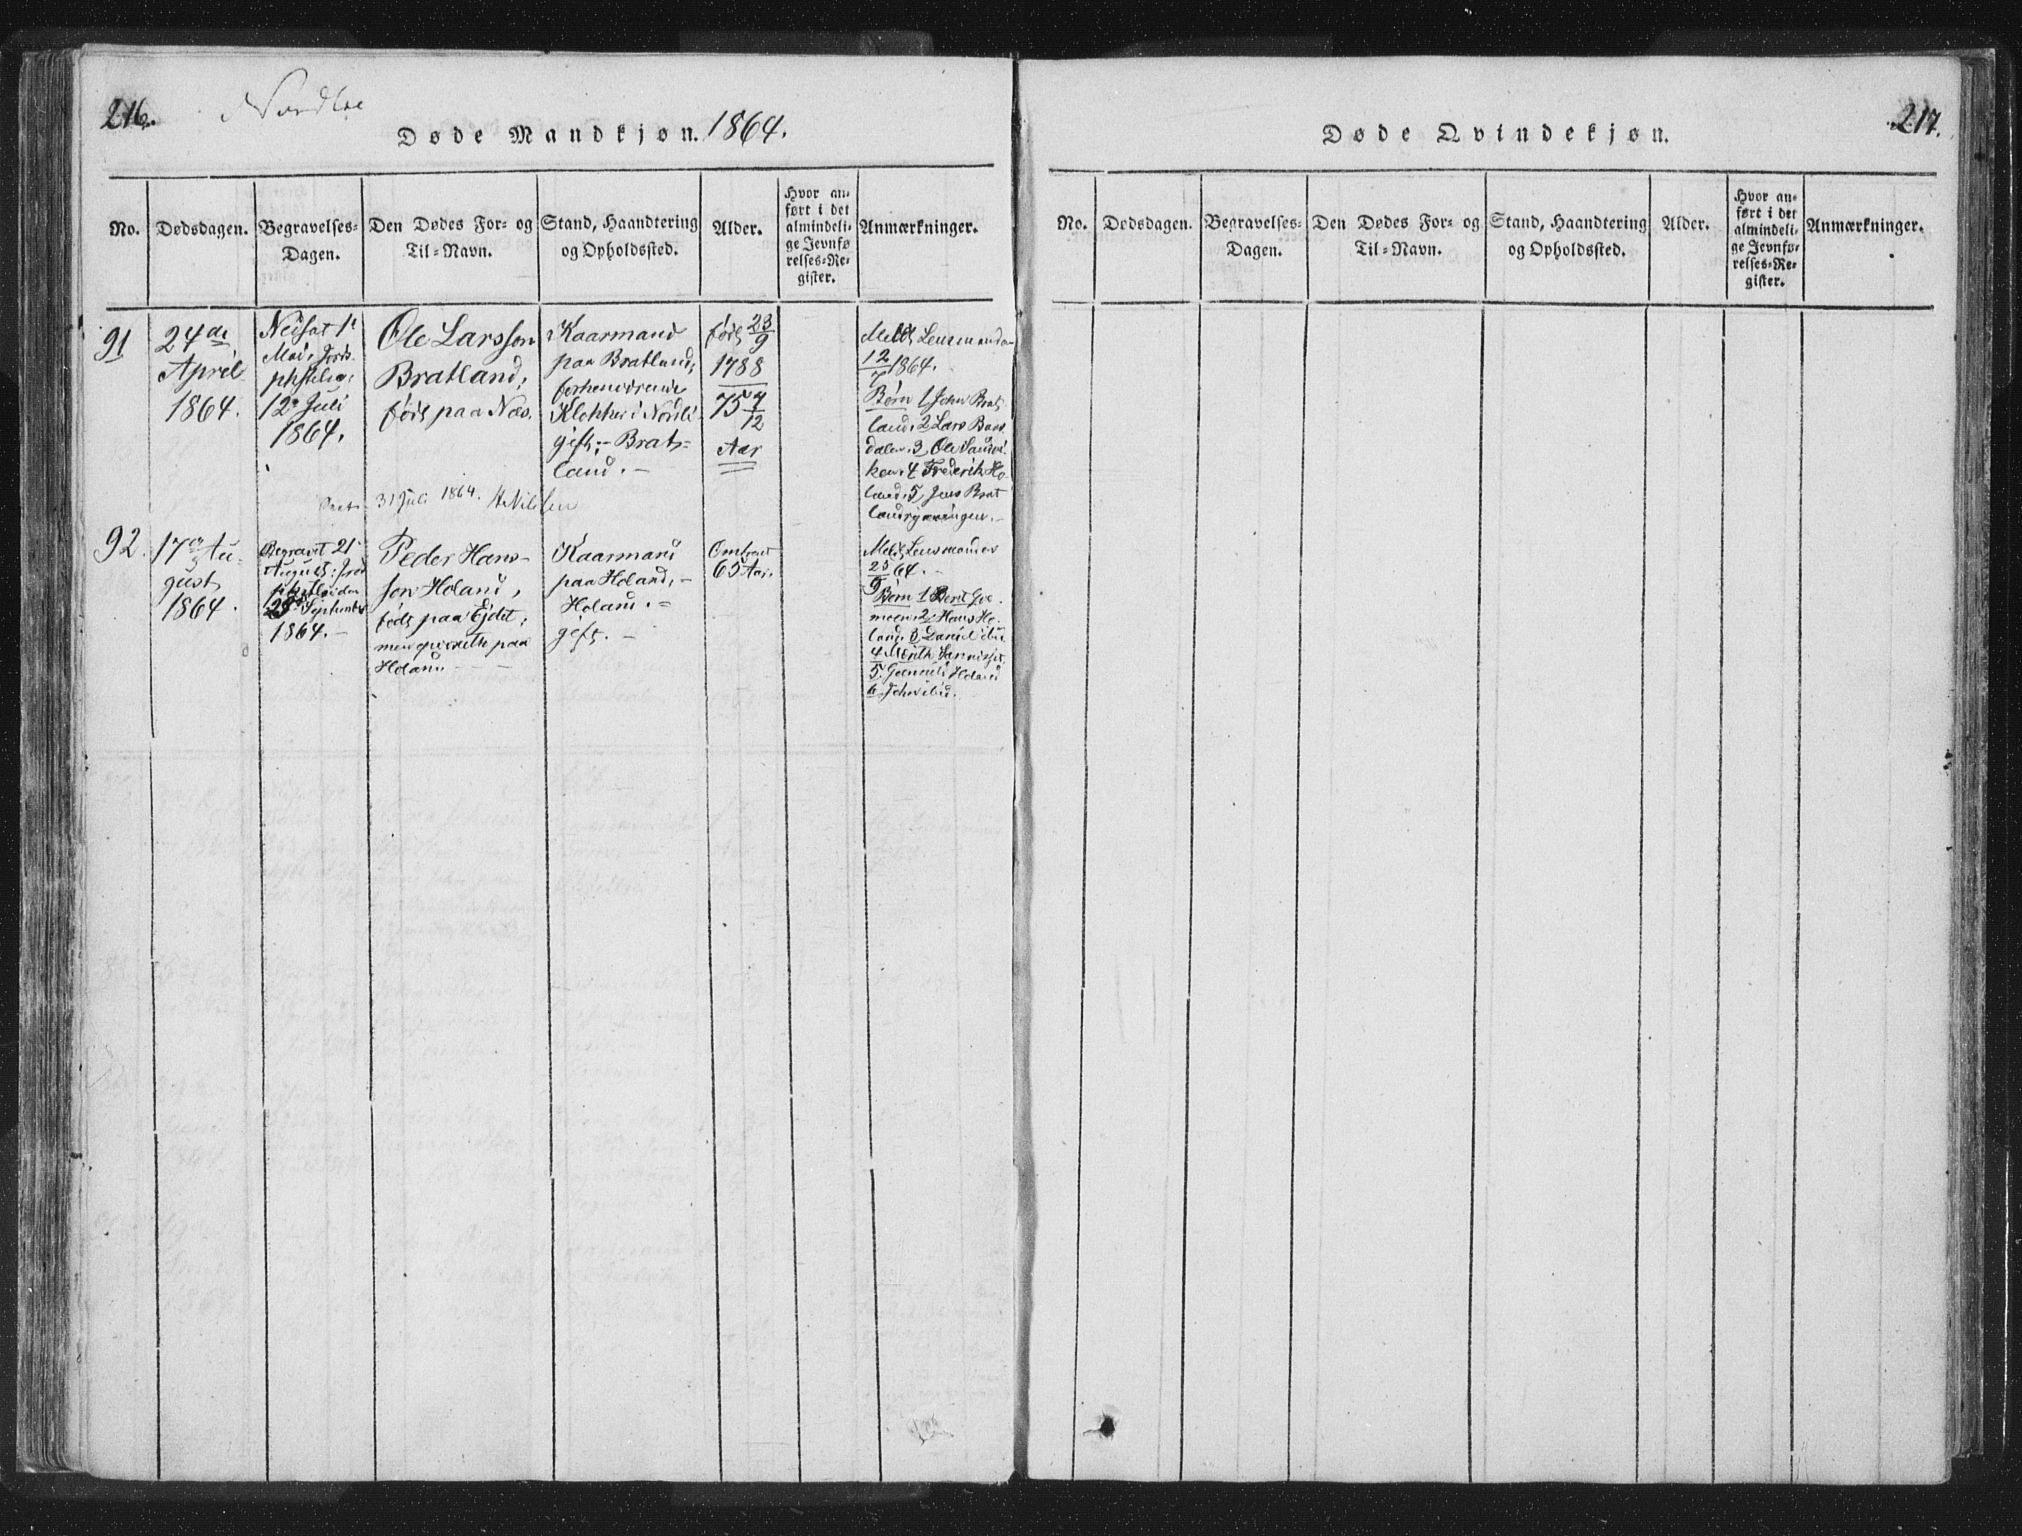 216.
Nordlie
Døde Mandkjøn. 1864.
No.
Dødsdagen.
Begravelses-
Dagen.
Den Dødes For- og
Til-Navn.
Stand, Haandtering
og Opholdssted.
Alder.
Hvor an-
ført i det
almindeli-
ge Jevnfø
relses-Re-
gister.
Anmærkninger.
91
24de
April
1864.
Nedsat 1e
Mai, Jords
12e Juli
1864.
Ole Larsson
Bratland,
født paa Næs.
Kaarmand
paa Bratland,
forhenværende
Klokker i Nordli
gift, - Brat-
land. -
født 23/9
1788
75 7/12
Aar
Meldt Lensmanden
12/7 1864.
Børn 1, John Brat
land, 2 Lars
dalen, 3, Ole Sandvi
ken, 4 Frederik Ho
land, 5, Jens Brat
31 Juli 1864. Nilssen
92.
17de Au-
gust
1864.
Begravet 21
August,
September
1864. -
Peder Hans-
son Holand,
født paa Ejdet,
men paa
Holand. - -
Kaarmand
paa Holand, -
Holand. -
gift. -
Omtrent
65 Aar.
Meldt Lensmanden
64. -
Børn 1 Berit
2, Hans Ho-
land, 3 Daniel ibid
4
5. Holand
6. John ibid.
217.
Døde Qvindekjøn.
No.
Dødsdagen.
Begravelses-
Dagen.
Den Dødes For- og
Til-Navn.
Stand, Haandtering
og Opholdssted.
Alder.
Hvor an-
ført i det
almindeli-
ge Jevnfø-
relses-Re-
gister.
Anmærkninger.